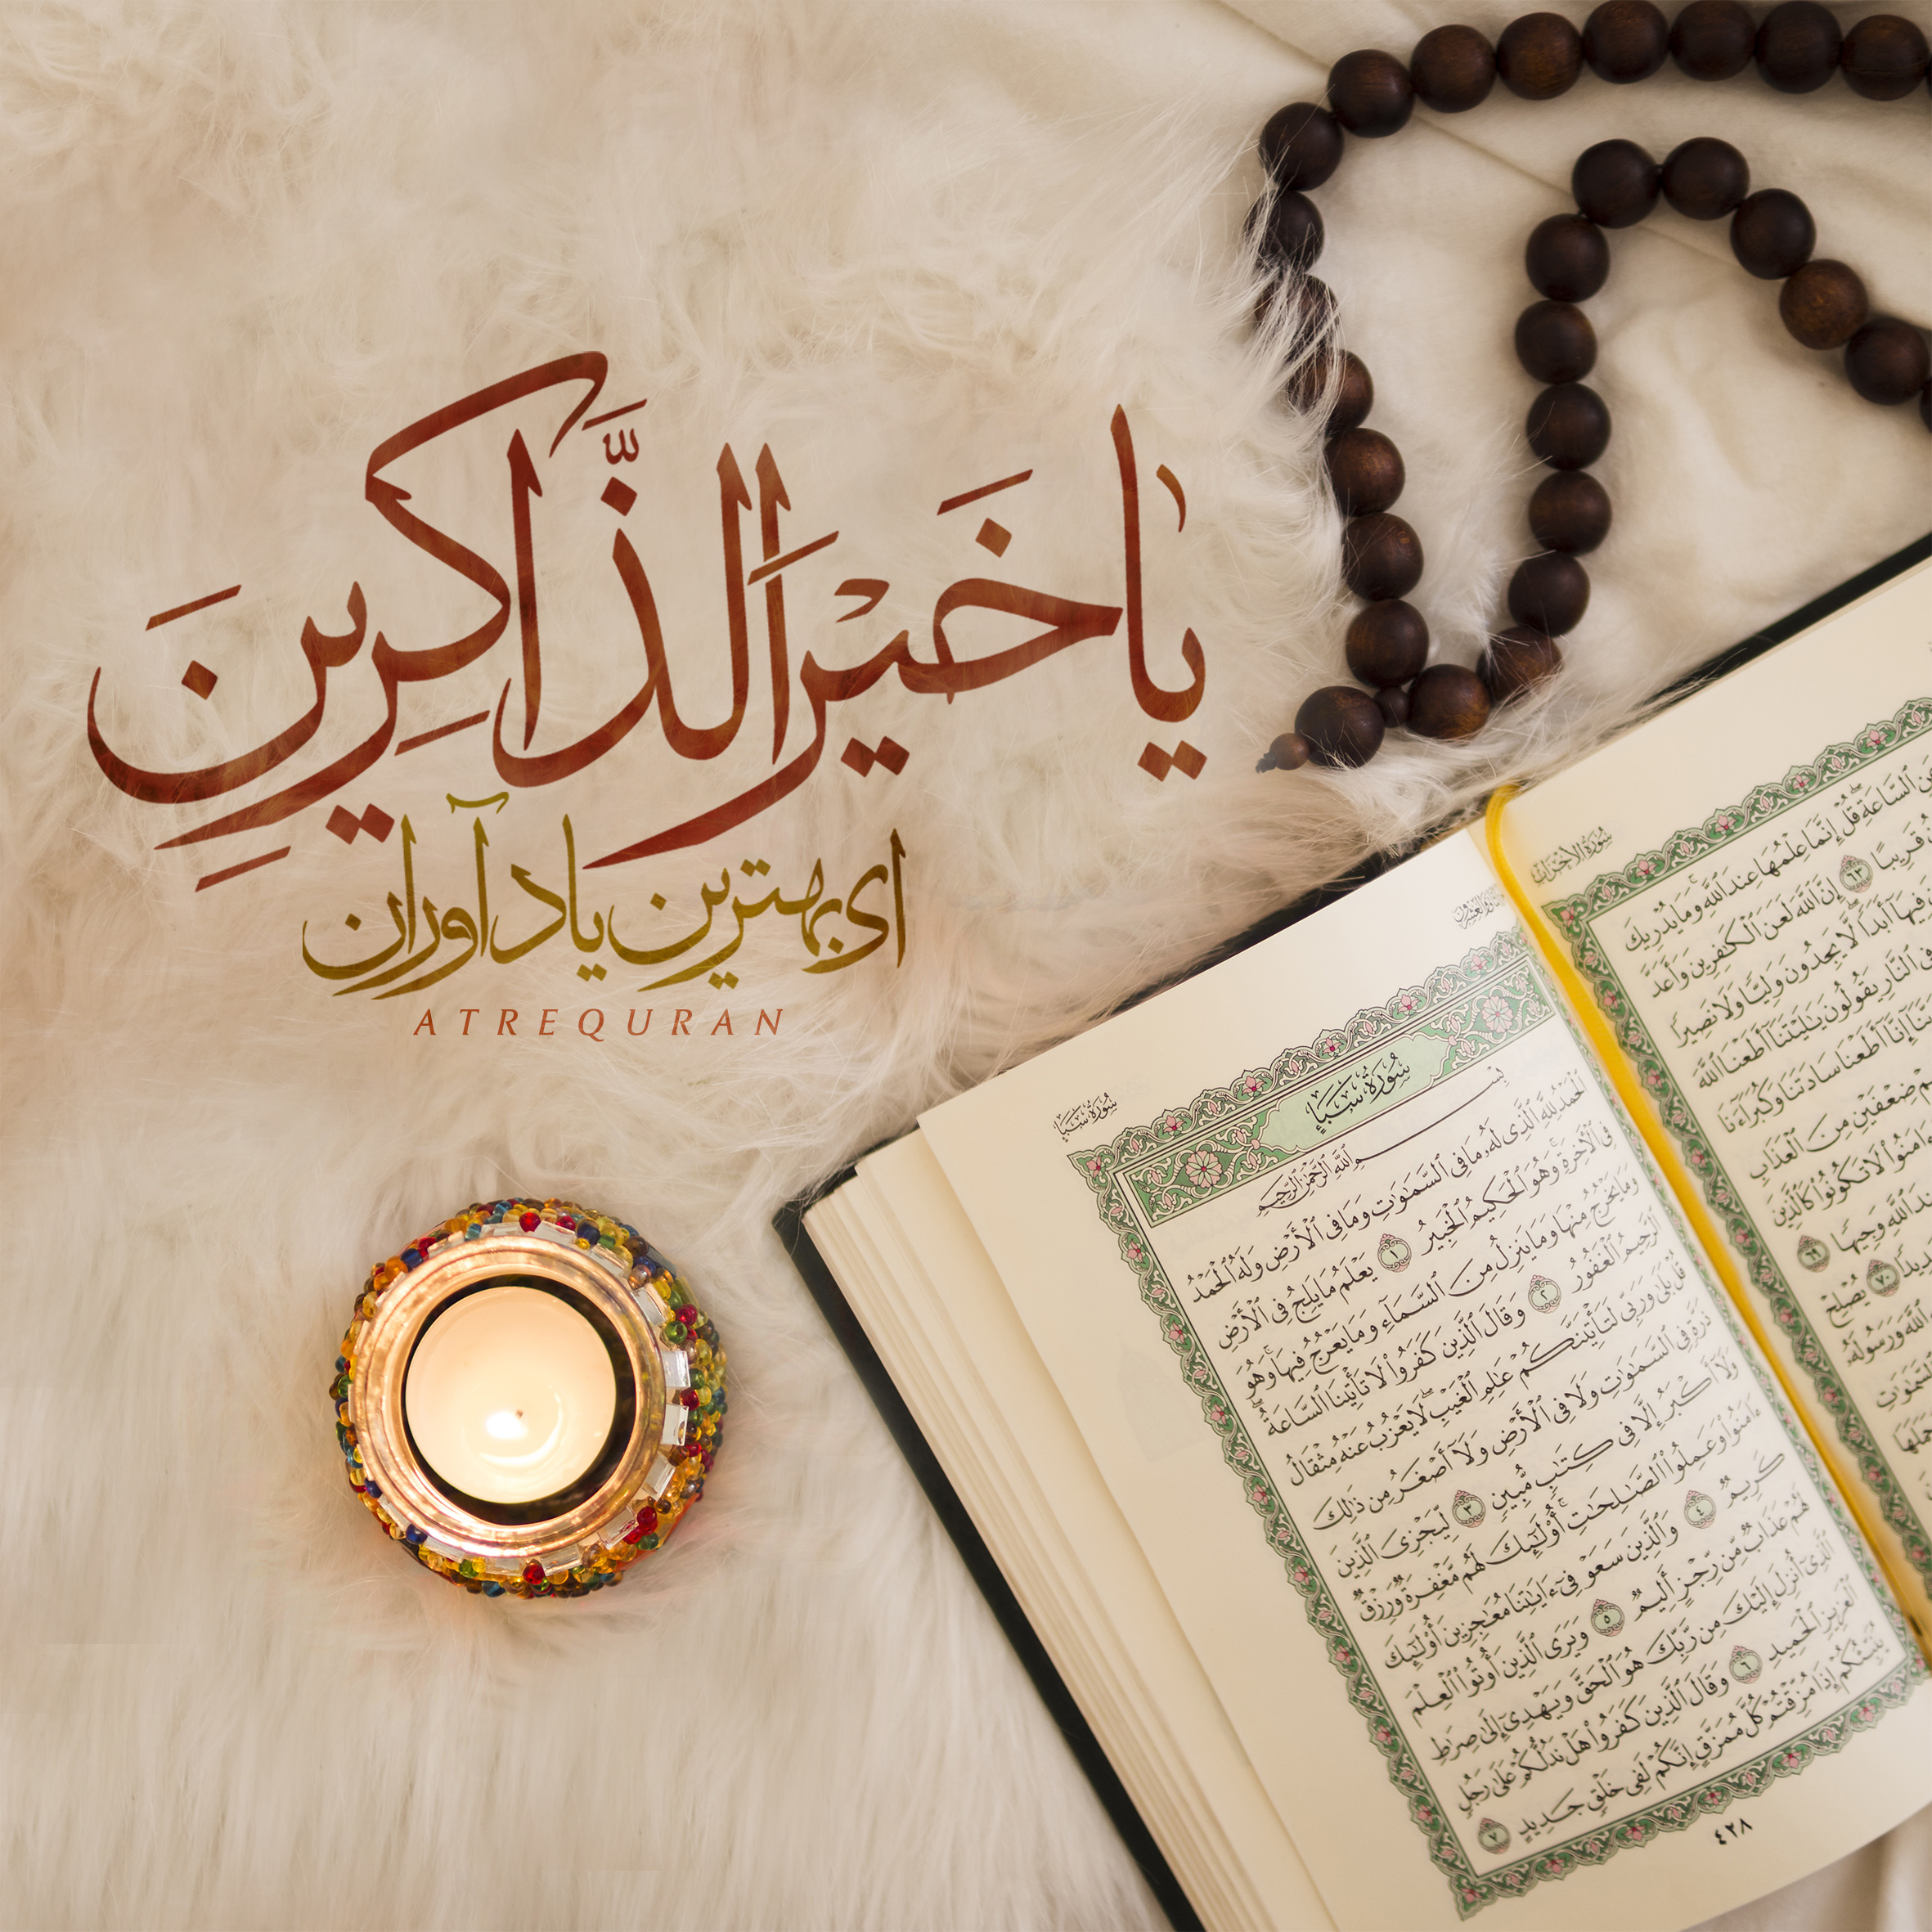 يَا خَيْرَ الذَّاكِرِينَ
ای بهترین یاد آوران
ATREQURAN
سُورَةُ الأَحْزَابِ
سُورَةُ سَبَإٍ
سُورَةُ سَبَإٍ
بِسْمِ ٱللَّهِ ٱلرَّحْمَٰنِ ٱلرَّحِيمِ
ٱلْحَمْدُ لِلَّهِ ٱلَّذِى لَهُۥ مَا فِى ٱلسَّمَٰوَٰتِ وَمَا فِى ٱلْأَرْضِ وَلَهُ ٱلْحَمْدُ
فِى ٱلْأَخِرَةِ ۚ وَهُوَ ٱلْحَكِيمُ ٱلْخَبِيرُ ١ يَعْلَمُ مَا يَلِجُ فِى ٱلْأَرْضِ
وَمَا يَخْرُجُ مِنْهَا وَمَا يَنزِلُ مِنَ ٱلسَّمَآءِ وَمَا يَعْرُجُ فِيهَا ۚ وَهُوَ
ٱلرَّحِيمُ ٱلْغَفُورُ ٢ وَقَالَ ٱلَّذِينَ كَفَرُوا۟ لَا تَأْتِينَا ٱلسَّاعَةُ ۖ
قُلْ بَلَىٰ وَرَبِّى لَتَأْتِيَنَّكُمْ عَٰلِمِ ٱلْغَيْبِ ۖ لَا يَعْزُبُ عَنْهُ مِثْقَالُ
ذَرَّةٍ فِى ٱلسَّمَٰوَٰتِ وَلَا فِى ٱلْأَرْضِ وَلَآ أَصْغَرُ مِن ذَٰلِكَ
وَلَآ أَكْبَرُ إِلَّا فِى كِتَٰبٍ مُّبِينٍ ٣ لِّيَجْزِىَ ٱلَّذِينَ
ءَامَنُوا۟ وَعَمِلُوا۟ ٱلصَّٰلِحَٰتِ ۚ أُو۟لَٰٓئِكَ لَهُم مَّغْفِرَةٌ وَرِزْقٌ
كَرِيمٌ ٤ وَٱلَّذِينَ سَعَوْ فِىٓ ءَايَٰتِنَا مُعَٰجِزِينَ أُو۟لَٰٓئِكَ
لَهُمْ عَذَابٌ مِّن رِّجْزٍ أَلِيمٌ ٥ وَيَرَى ٱلَّذِينَ أُوتُوا۟ ٱلْعِلْمَ
ٱلَّذِىٓ أُنزِلَ إِلَيْكَ مِن رَّبِّكَ هُوَ ٱلْحَقَّ وَيَهْدِىٓ إِلَىٰ صِرَٰطِ
ٱلْعَزِيزِ ٱلْحَمِيدِ ٦ وَقَالَ ٱلَّذِينَ كَفَرُوا۟ هَلْ نَدُلُّكُمْ عَلَىٰ رَجُلٍ
يُنَبِّئُكُمْ إِذَا مُزِّقْتُمْ كُلَّ مُمَزَّقٍ إِنَّكُمْ لَفِى خَلْقٍ جَدِيدٍ ٧
٤٢٨
ٱلسَّاعَةِ ۖ قُلْ إِنَّمَا عِلْمُهَا عِندَ ٱللَّهِ ۚ وَمَا يُدْرِيكَ
قَرِيبًا ٦٣ إِنَّ ٱللَّهَ لَعَنَ ٱلْكَٰفِرِينَ وَأَعَدَّ
فِيهَآ أَبَدًا ۖ لَّا يَجِدُونَ وَلِيًّا وَلَا نَصِيرًا
فِى ٱلنَّارِ يَقُولُونَ يَٰلَيْتَنَآ أَطَعْنَا ٱللَّهَ
إِنَّآ أَطَعْنَا سَادَتَنَا وَكُبَرَآءَنَا
ضِعْفَيْنِ مِنَ ٱلْعَذَابِ
ءَامَنُوا۟ لَا تَكُونُوا۟ كَٱلَّذِينَ
ٱللَّهِ وَجِيهًا ٦٩
٧٠ يُصْلِحْ
ٱللَّهَ وَرَسُولَهُۥ